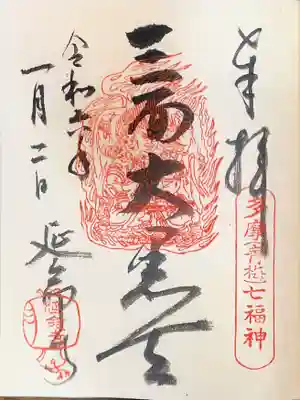 奉拝
多摩青梅七福神
三面大黒天
令和六年
一月二日
延命寺